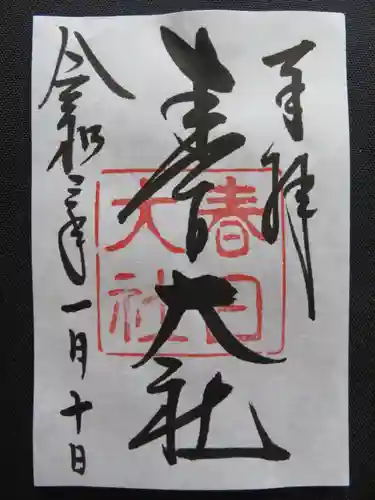 奉拝
春日大社
令和二年一月十日
春日
大社